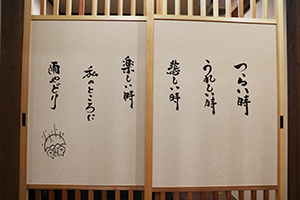 つらい時
うれしい時
愁しい時
楽しい時
私のところに
雨やどり